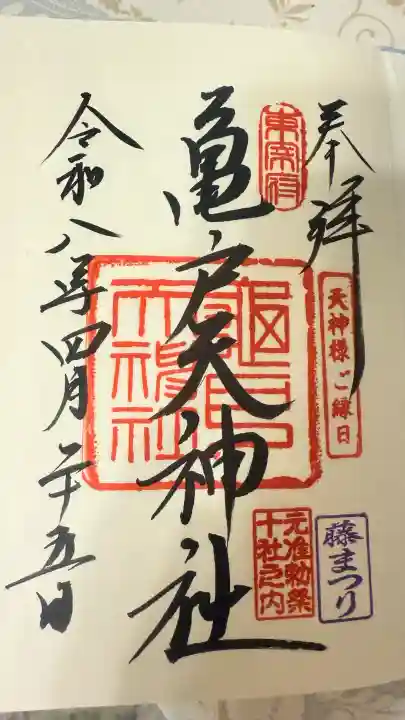 奉拝
天神様ご縁日
藤まつり
東宰府
亀戸天神社
元准勅祭
十社之内
令和八年四月二十五日